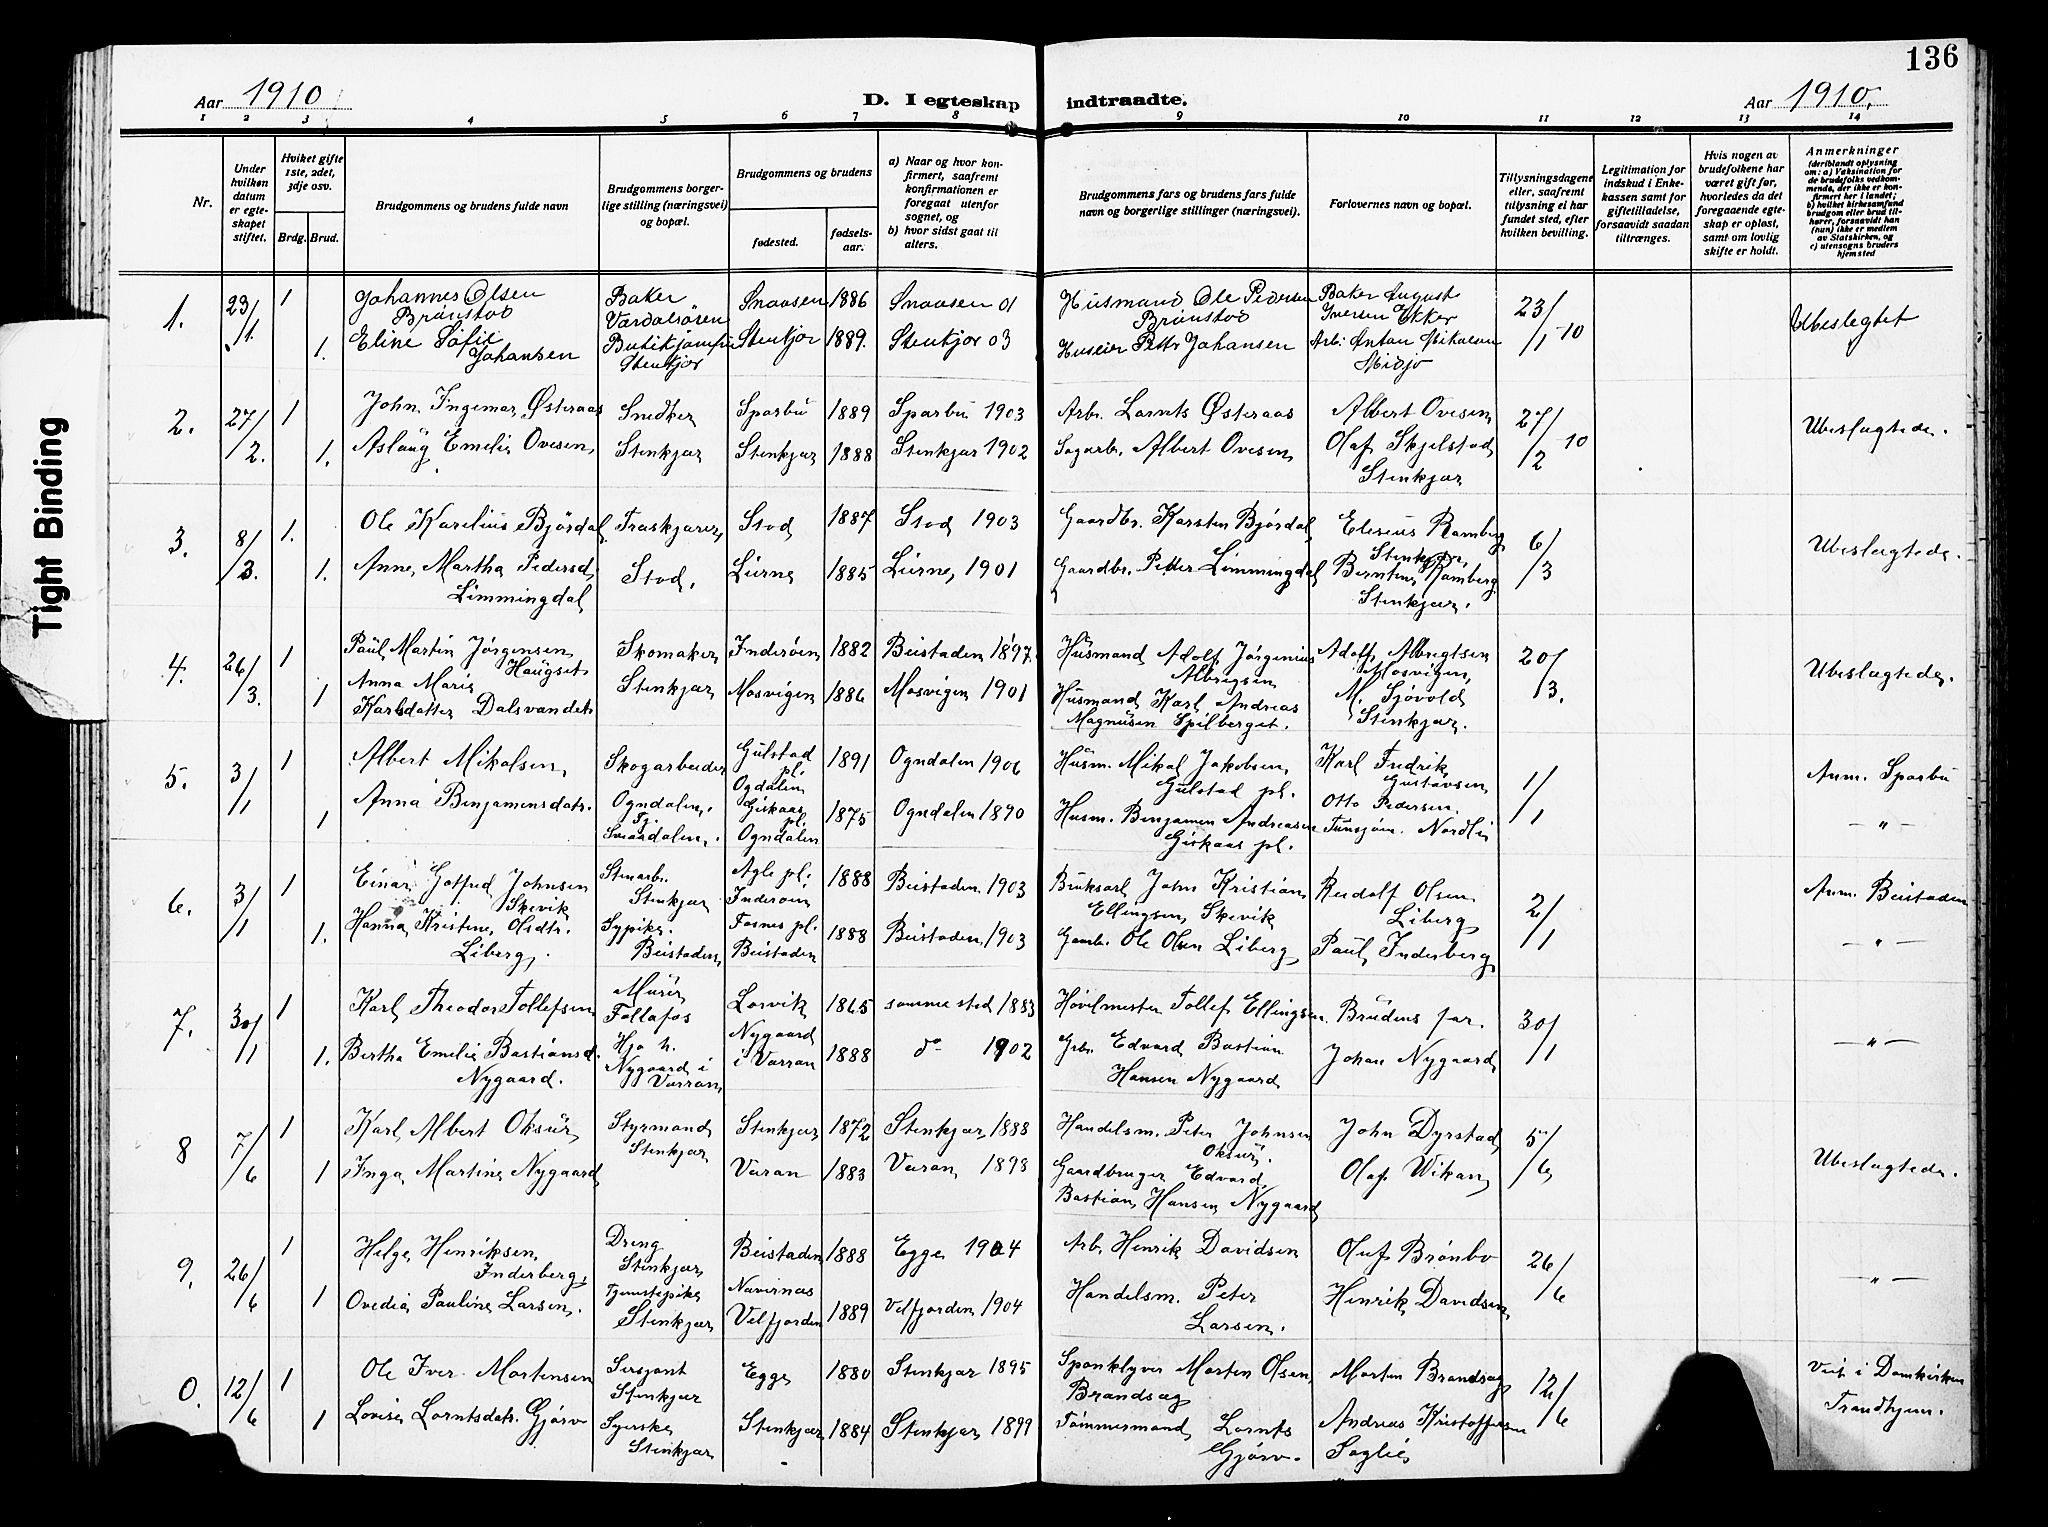 136
Tight Binding
Aar 1910
D. I egteskap indtraadte.
Aar 1910.
1 2 3 4 5 6 7 8 9 10 11 12 13 14
Nr.
Under hvilken datum er egteskapet stiftet.
Hviket gifte 1ste, 2det, 3dje osv.
Brdg. Brud.
Brudgommens og brudens fulde navn
Brudgommens borgerlige stilling (næringsvei) og bopæl.
Brudgommens og brudens
fødested. fødselsaar.
a) Naar og hvor konfirmert, saafremt konfirmationen er foregaat utenfor sognet, og
b) hvor sidst gaat til alters.
Brudgommens fars og brudens fars fulde navn og borgerlige stillinger (næringsvei).
Forlovernes navn og bopæl.
Tillysningsdagene eller, saafremt tillysning ei har fundet sted, efter hvilken bevilling.
Legitimation for indskud i Enkekassen samt for giftetilladelse, forsaavidt saadan tiltrænges.
Hvis nogen av brudefolkene har været gift før, hvorledes da det foregaaende egteskap er opløst, samt om lovlig skifte er holdt.
Anmerkninger (deriblandt oplysning om: a) Vaksination for de brudefolks vedkommende, der ikke er konfirmert her i landet; b) hvilket kirkesamfund brudgom eller brud tilhører, forsaavidt han (hun) ikke er medlem av Statskirken, og c) utensogns bruders hjemsted
1. 23/1. 1 Johannes Olsen Brønstad Baker Værdalsøren Snaasen 1886 Snaasen 01 Husmand Ole Pedersen Brønstad Baker August Iversen Ekker 23/1-10 Ubeslegtet
1. Eline Sofie Johansen Butikjomfru Stenkjør Stenkjør 1889. Stenkjør 03 Huseier Petter Johansen Arb. Anton Mikalsen Midjo
2. 27/2. 1 John Ingemar Østeraas Snedker Sparbu 1889 Sparbu 1903 Arb. Lornts Østeraas Albert Ovesen 27/2 10 Ubeslægtede.
1. Aslaug Emilie Ovesen Stenkjær Stenkjær 1888 Stenkjær 1902 Sagarb. Albert Ovesen Olaf Skjelstad Stenkjær
3. 8/3. 1. Ole Karelius Bjørdal Træskjærer Stod 1887 Stod 1903 Gaardbr. Karsten Bjørdal Elesius Ramberg Stenkjær 6/3 Ubeslægtede.
1. Anne Martha Pedersd. Limmingdal Stod. Lierne 1885 Lierne 1901 Gaardbr. Petter Limmingdal Berntine Ramberg Stenkjær.
4. 26/3. 1 Paul Martin Jørgensen Haugset Skomaker Inderøen 1882 Beistaden 1897. Husmand Adolf Jørgenius Albrigsen Adolf Albregtsen Mosvigen 20/3. Ubeslægtede.
1 Anna Marie Karlsdatter Dalsvandet Stenkjær Mosvigen 1886 Mosvigen 1901 Husmand Karl Andreas Magnusen Spilberget. M. Sjøvold Stenkjær.
5. 3/1 1 Albert Mikalsen Skogarbeider Gulstad pl. Ogndalen 1891 Ogndalen 1906 Husm. Mikal Jakobsen Gulstad pl. Karl Fredrik Gustavsen 1/1 Anm. Sparbu
1 Anna Benjaminsdatr. Ogndalen. Tj. Giskaas pl. Ogndalen 1875 Ogndalen 1890 Husm. Benjamen Andreasen Giskaas pl. Otto Pedersen Tunsjøen. Nordli - " -
6. 3/1 1 Einar Gotfred Johnsen Skevik Stenarb. Stenkjær Agle pl. Inderøen 1888 Beistaden 1903 Bruksarb. John Kristian Ellingsen Skevik Rudolf Olsen Liberg 2/1 Anm. Beistaden
1. Hanna Kristine Olsdtr. Liberg. Sypike. Beistaden Fosnes pl. Beistaden 1888 Beistaden 1903 Gaarbr. Ole Olsen Liberg Paul Inderberg - " -
7. 30/1 1 Karl Theodor Tollefsen Murer Follafos Larvik 1865 samme sted 1883 Høvilmester Tollef Ellingsen Brudens far. 30/1 - " -
1. Bertha Emilie Bastiansd. Nygaard. Hja h. Nygaard i Varran Nygaard i Varran 1888 do 1902 Grbr. Edvard Bastian Hansen Nygaard Johan Nygaard
8 7/6 1 Karl Albert Oksur Styrmand Stenkjær Stenkjær 1872 Stenkjær 1888 Handelsm. Peter Johnsen Oksur. John Dyrstad 5/6 Ubeslægtede.
1 Inga Martine Nygaard Varan 1883 Varan 1898 Gaardbruger Edvard Bastian Hansen Nygaard Olaf Wikan
9. 26/6 1 Helge Henriksen Inderberg Dreng Stenkjær Beistaden 1888 Egge 1904 Arb. Henrik Davidsen Oluf Brønbo 26/6 - " -
1 Ovedia Pauline Larsen. Tjenestepike Stenkjær Navernæs Velfjorden 1889 Velfjorden 1904 Handelsm. Peter Larsen. Henrik Davidsen
0. 12/6 1 Ole Iver Mortensen Sersjant Stenkjær Egge 1880 Stenkjær 1895 Sponklyver Morten Olsen Brandsæg Morten Brandsæg 12/6 Viet i Domkirken Trondhjem.
1 Lovise Lorntsdatr. Gjørv Syerske Stenkjær Stenkjær 1884 Stenkjær 1899 Tømmermand Lornts Gjørv. Andreas Kristoffersen Saglie